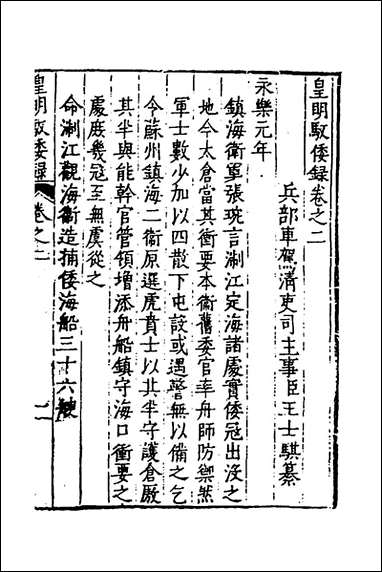 皇明馭倭録卷之二
兵部車駕清吏司主事臣王士騏纂
永樂元年
鎮海衛軍張琬言浙江定海諸處實倭寇出沒之
地今太倉當其衝要本衛舊委官率舟師防禦然
軍士數少加以四散下屯設或遇警無以備之乞
令蘇州鎮海二衛原選虎賁士以其半守護倉厫
其半與能幹官管領增添舟船鎮守海口衝要之
處庶幾寇至無虞從之
命浙江觀海衛造捕倭海船三十六艘
皇明馭倭録
卷之二
一